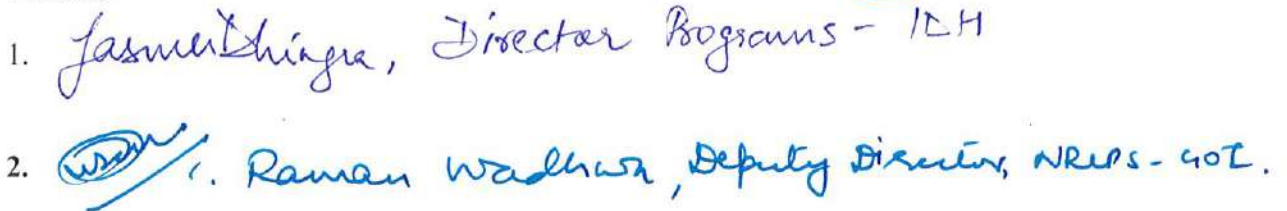 1. Jasmer Dhingra, Director Programs - IDH
2. Raman Wadhwa, Deputy Director, NRLPS - GOI.